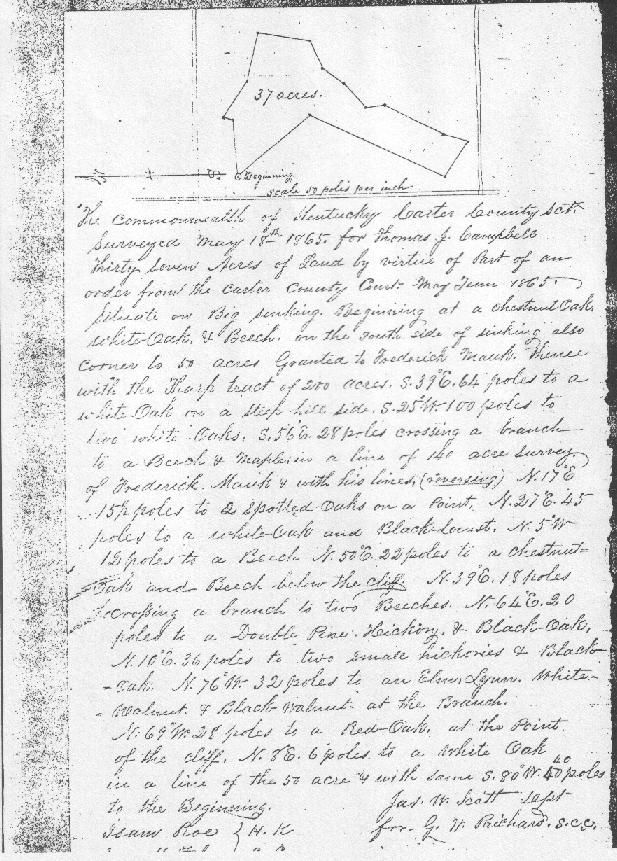 37 acres.
Beginning
scale 50 poles per inch
The Commonwealth of Kentucky Carter County Sct.
Surveyed May 18th 1865. for Thomas J. Campbell
Thirty Seven Acres of Land by virtue of Part of an
order from the Carter County Court May Term 1865.
Situate on Big Sinking. Beginning at a Chestnut Oak,
White Oak, & Beech. on the South side of Sinking also
Corner to 50 acres Granted to Frederick Mauk. Thence
with the Tharp tract of 200 acres. S. 39 E. 64 poles to a
White Oak on a Steep hill side. S. 25 W. 100 poles to
two white Oaks. S. 56 E. 28 poles crossing a branch
to a Beech & Maple in a line of 140 acre Survey
of Frederick Mauk & with his lines (reversing) N. 17 E
15½ poles to 2 Spotted Oaks on a Point. N. 27 E. 45
poles to a White Oak and Black Locust. N. 5 W
12 poles to a Beech N. 50 E. 22 poles to a Chestnut
Oak and Beech below the cliff N. 39 E. 18 poles
Crossing a branch to two Beeches. N. 64 E. 20
poles to a Double Pine. Hickory. & Black Oak.
N. 10 E. 36 poles to two small hickories & Black
-Oak. N. 76 W. 32 poles to an Elm, Lynn. White-
-Walnut. & Black walnut at the Branch.
N. 69 W. 28 poles to a Red-Oak. at the Point
of the cliff. N. 8 E. 6 poles to a White Oak
in a line of the 50 acre & with same S. 80 W. 40 poles
to the Beginning.
Jas. W. Scott
Isam Roe } H. K
for. G. W. Prichard. S.C.C.